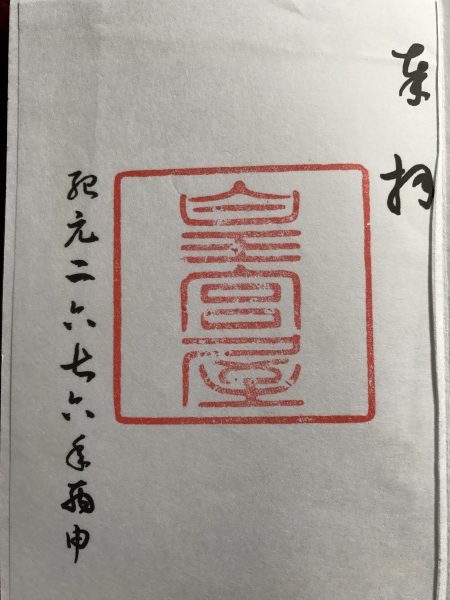 奉拝
皇宮屋
紀元二六七六年丙申